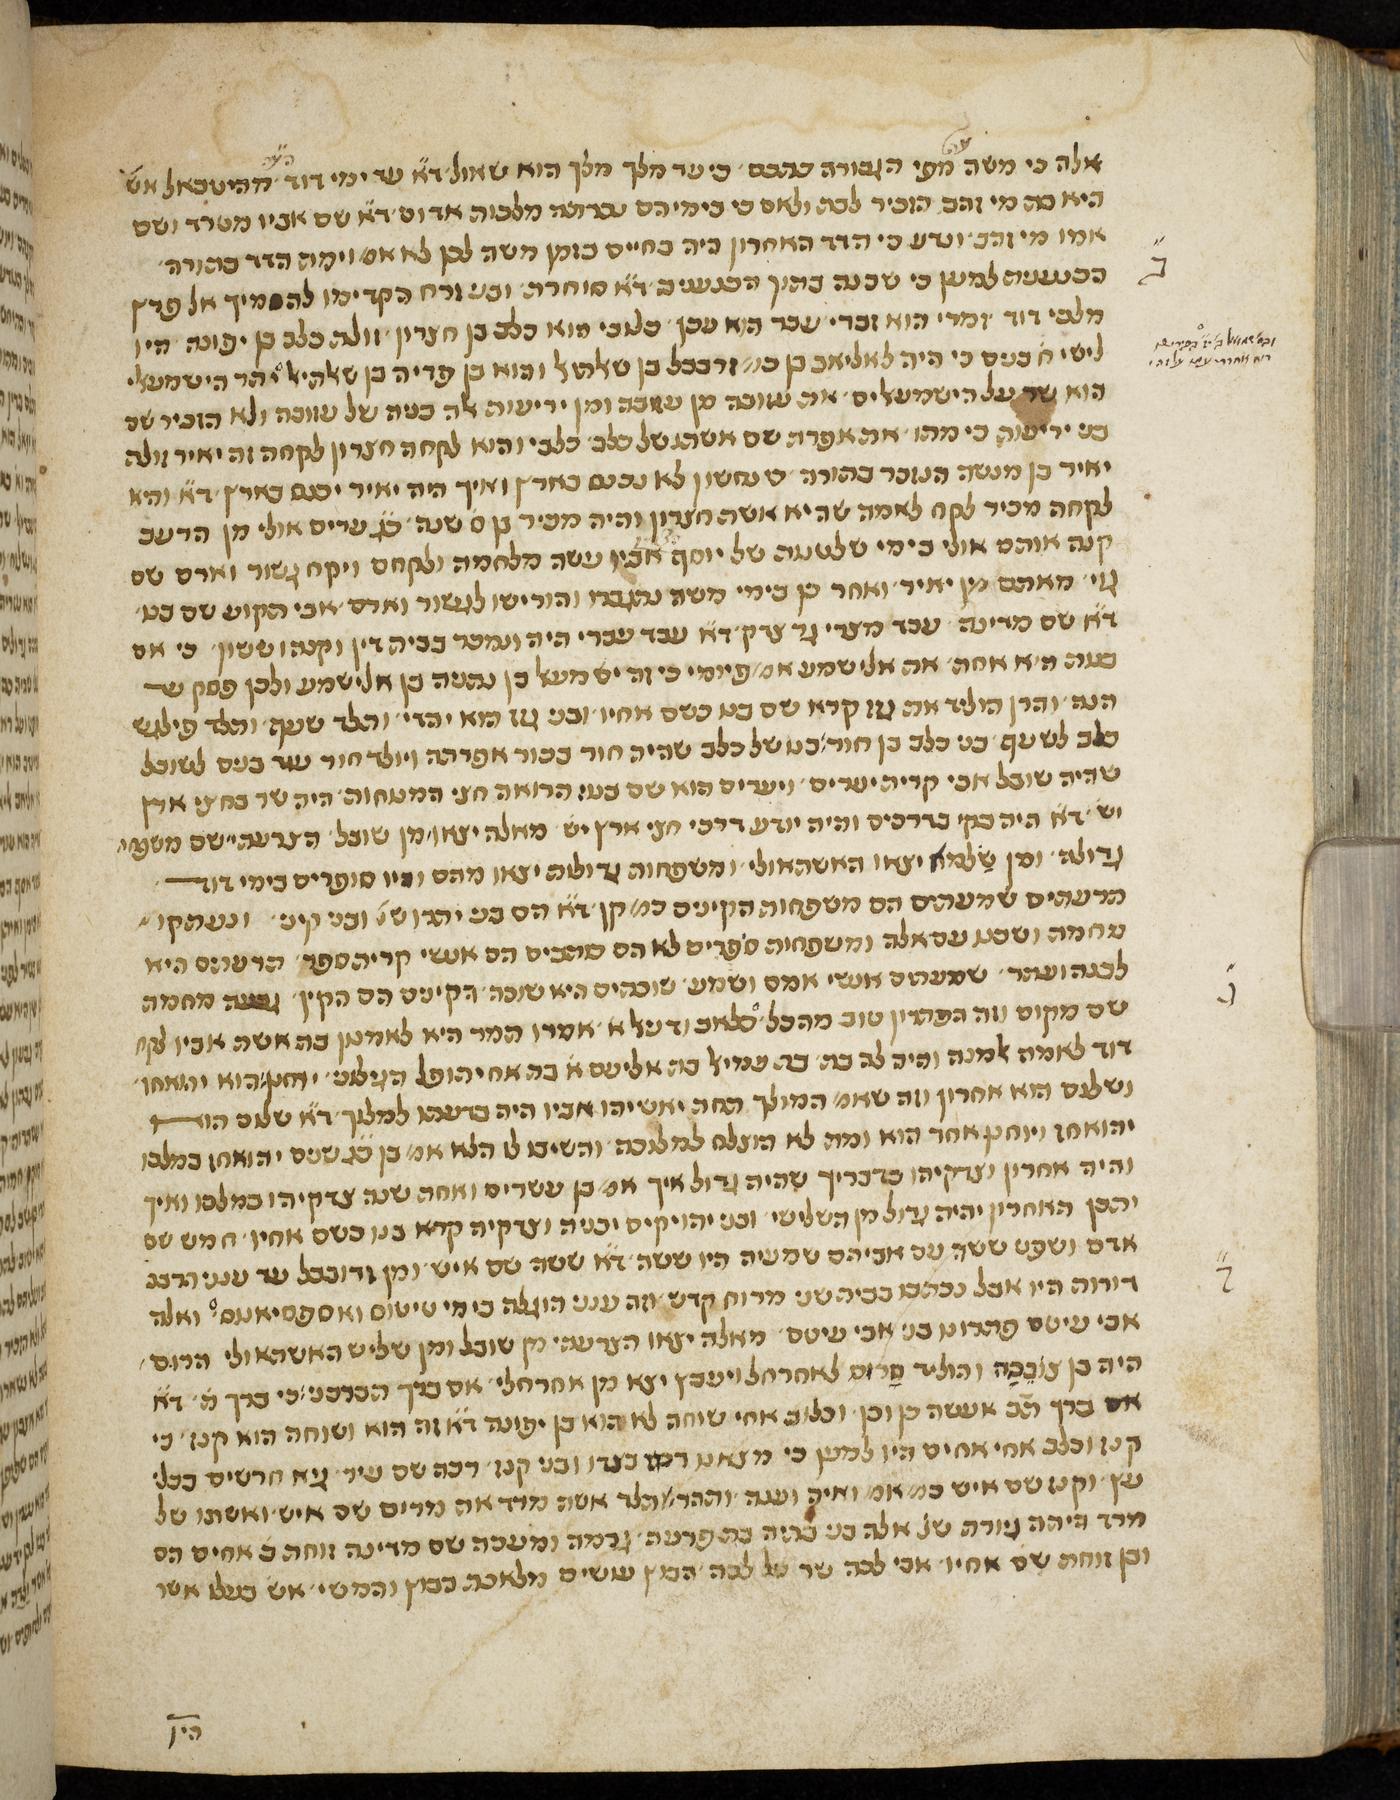 אלה כי משה מפי הגבורה כתבם כי עד מלך מלך הוא שאול ד״א עד ימי דוד מהיטבאל אש
היא בת מי זהב הזכיר לבת ולאם כי בימיהם נכרתה מלכות אדום ד״א שם אביו מטרד ושם
אמו מי זהב ונדע כי הדד האחרון היה בחיים בזמן משה לכן לא אמ׳ וימת הדד בתורה
ב
הכנענית למען כי שכנה בתוך הכנענים ד״א סוחרת ובני זרח הקדימו להסמיך אל פרץ
מלכי דוד זמרי הוא זבדי עכר הוא עכן כלובי הוא כלב בן חצרון זולת כלב בן יפונה היו
לישי ח׳ בנים כי היה לאליאב בן כמ׳ זרבבל בן שלתיאל והוא בן פדיה בן שאלתיאל יתר הישמעלי
הוא שר על הישמעלים את עזובה מן עזובה ומן יריעות אלה בניה של עזובה ולא הזכיר שם
בני יריעות כי מתו את אפרת שם אשתו של כלב כלבי והוא לקחה חצרון לקחה זה יאיר זולת
יאיר בן מנשה הנזכר בתורה ש נחשון לא נכנס בארץ ואיך היה יאיר יכנס בארץ ד״א והיא
לקחה מכיר לקח לאמה שהיא אשת חצרון והיה מכיר בן ס׳ שנה כ״ג ערים אולי מן הרעב
קנה אותם אולי בימי שלטנות של יוסף אביו עשה מלחמה ולקחם ויקח גשור וארם שם
גוי מאתם מן יאיר ואחר כן בימי משה נתגברו והורישו לגשור וארם אבי תקוע שם בנו
ד״א שם מדינה עבד מצרי גר צדק ד״א עבד עברי היה ונמכר בבית דין וקנהו ששון כי אם
בנות היא אחת את אלישמע אמ׳ פיומי כי זה ישמעאל בן נתניה בן אלישמע ולכן פסק עד
הנה והרן הוליד את גזז קרא שם בנו כשם אחיו ובני גזז הוא יהדי והולד שעף והולד פילגש
כלב לשעף בני כלב בן חור בנו של כלב שהיה חור בכור אפרתה ויולד חור עוד בנים לשובל
שהיה שובל אבי קרית יערים ויערים הוא שם בנו הרואה חצי המנחות היה שר בחצי ארץ
יש׳ ד״א היה בקי בדרכים והיה יודע דרכי חצי ארץ יש׳ מאלה יצאו מן שובל הצרעתי שם משפחה
גדולה ומן שלמא יצאו האשתאולי ומשפחות גדולות יצאו מהם והיו סופרים בימי דוד
תרעתים שמעתים הם משפחות הקינים כמ׳ קן ד״א הם בני יתרו ש׳ ובני קיני ונעתקו
מחמת ושכנו עם אלה ומשפחות ספרים לא הם כותבים הם אנשי קרית ספר תרעתים היא
לבנה ועתר שמעתים אנשי אמם ושמע שוכתים היא שוכה הקינים הם הקין מחמת
שם מקום וזה הפתרון טוב מהכל אמרו המר היא לאמנון בת אשת אביו לקח
דוד לאמה אלמנה והיה לה בת בת עמיאל בת אליעם א׳ בת אחיתופל הגילוני יוחנן הוא יהואחז
ושלום הוא אחרון וזה שאמ׳ המולך תחת יאשיהו אביו היה בדעתו למלוך ד״א שלום הוא
יהואחז ויוחנן אחד הוא ומת לא הוצלח למלוכה והשיבו לו הלא אמ׳ בן כ״ג שנים יהואחז במלכו
והיה אחרון וצדקיהו כדבריך שהיה גדול איך אמ׳ בן עשרים ואחת שנה צדקיהו במלכו ואיך
יתכן האחרון יהיה גדול מן השלישי ובני יהויקים יכניה וצדקיה קרא בנו כשם אחיו חמש שם
אדם ושפט ששה עם אביהם שמעיה היו ששה ד״א ששה שם איש ומן זרובבל עד ענני הרבה
דורות היו אבל נכתבו בבית שני מרוח קדש וזה ענני הוגלה בימי טיטוס ואספסיאנוס ואלה
אבי עיטם פתרונו בני אבי עיטם מאלה יצאו הצרעתי מן שובל ומן שליש האשתאולי הרום
היה בן צובבה והוליד חרום לאחרחל ויעבץ יצא מן אחרחל אם ברך תברכני כי ברך ה׳ ד״א
אם ברך תב׳ אעשה כן וכן וכלוב אחי שוחה לא הוא בן יפונה ד״א זה הוא ושוחה הוא קנז כי
קנז וכלב אחי אחים היו למען כי מצאנו בגדו ובני קנז רכה שם עיר גיא חרשים בכלי
עץ וקנז שם איש כמ׳ אמ׳ ואיה וענה ותהר ותלד אשת מרד את מרים שם איש ואשתו של
מרד היתה גיורת של אלה בני בתיה בת פרעה גרמה ומעכה שם מדינה זוחת ב׳ אחים הם
ובן זוחת שם אחיו אבי לכה שר על לכה הבוץ עושים מלאכת בבוץ והמשי אש׳ בעלו אשר
היו